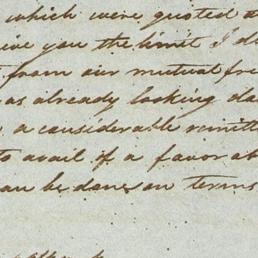 which were quoted a
ive you the limit I d
from our mutual fre
as already looking da
a considerable remitt
to avail if a favorab
an be done on terms